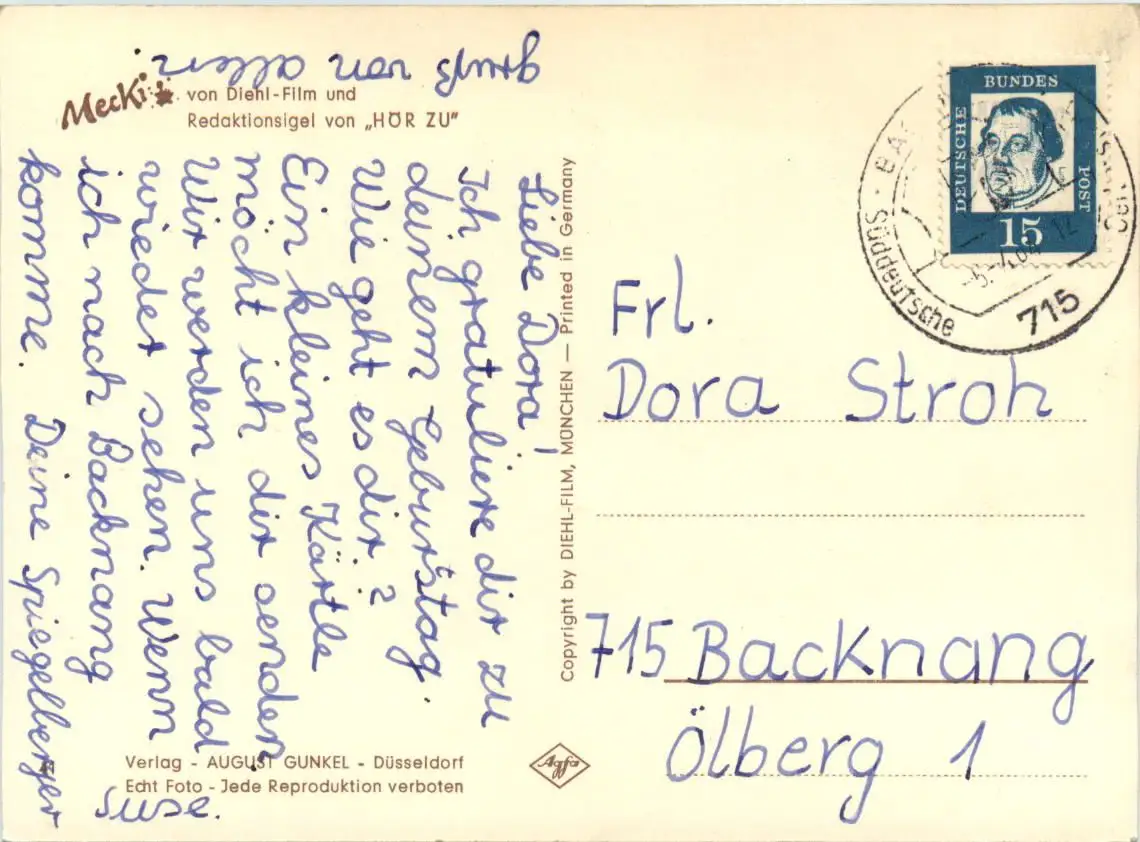 gruß von allen
Mecki
von Diehl-Film und
Redaktionsigel von „HÖR ZU“
Liebe Dora!
Ich gratuliere dir zu
deinem Geburtstag.
Wie geht es dir?
Ein kleines Kärtle
möcht ich dir senden
Wir werden uns bald
wieder sehen. Wenn
ich nach Backnang
komme. Deine Spiegelberger
Suse.
Verlag - AUGUST GUNKEL - Düsseldorf
Echt Foto - Jede Reproduktion verboten
Copyright by DIEHL-FILM, MÜNCHEN — Printed in Germany
Agfa
DEUTSCHE BUNDES POST
15
Süddeutsche
715
Frl.
Dora Stroh
715 Backnang
Ölberg 1